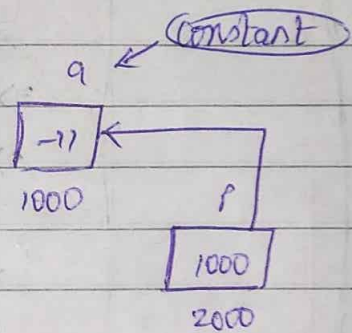 constant
a
-11
1000
P
1000
2000